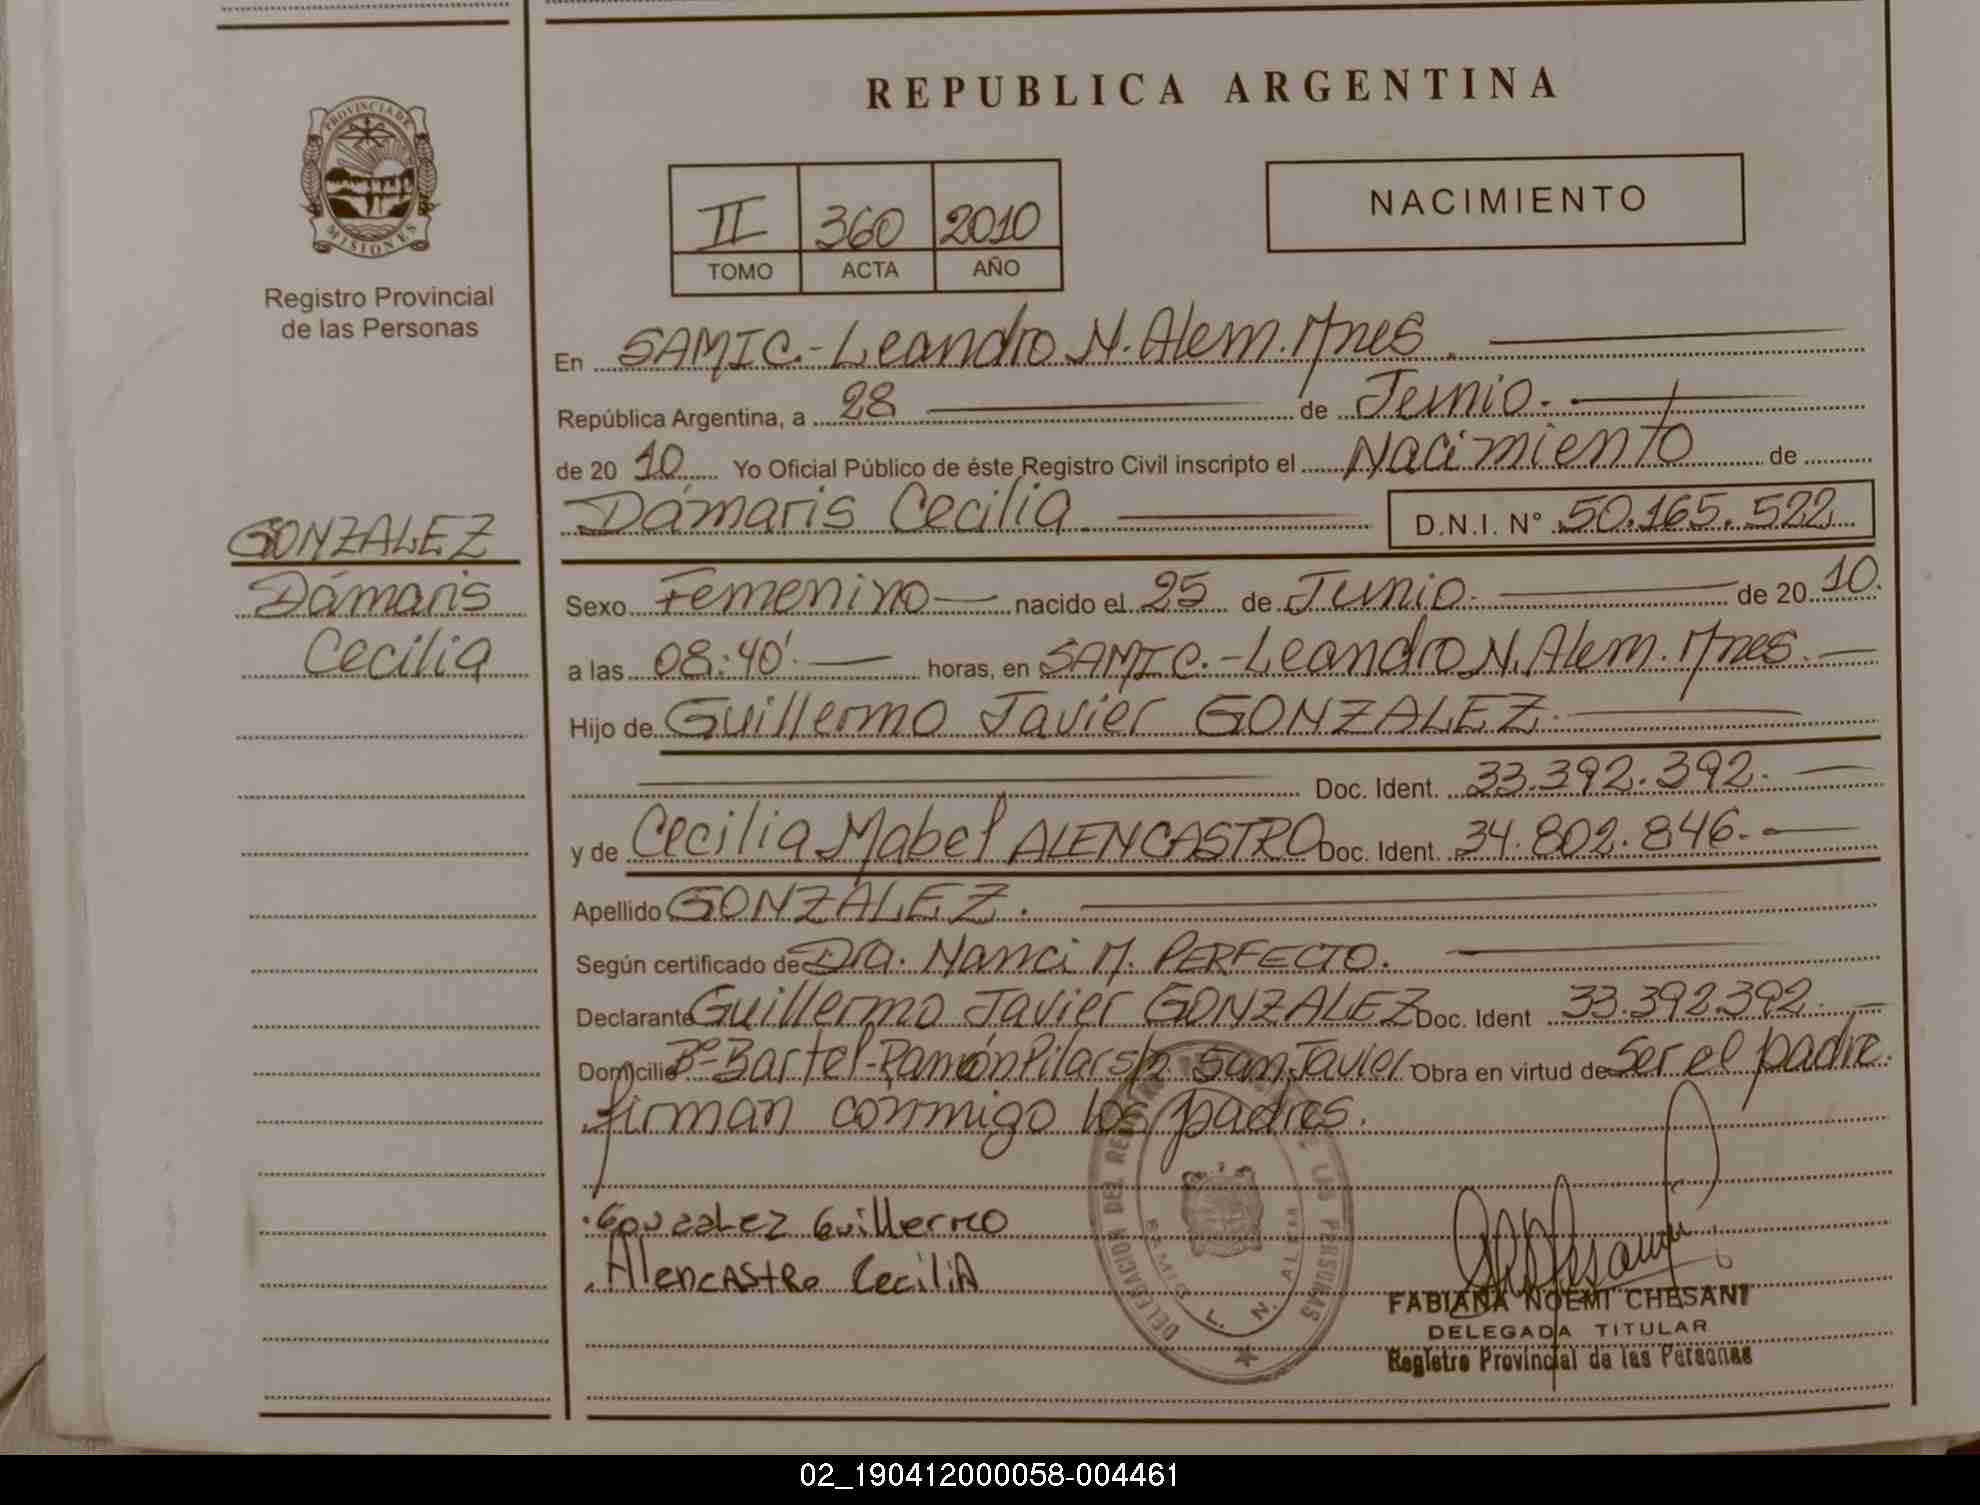 REPUBLICA ARGENTINA
PROVINCIA DE
MISIONES
Registro Provincial
de las Personas
II 360 2010
TOMO ACTA AÑO
NACIMIENTO
En SAMIC.-Leandro N. Alem. Mnes.
República Argentina, a 28 de Junio.
de 20 10 Yo Oficial Público de éste Registro Civil inscripto el Nacimiento de
Dámaris Cecilia D.N.I. N° 50.165.522
GONZALEZ
Dámaris
Cecilia
Sexo Femenino nacido el 25 de Junio. de 20 10.
a las 08:40' horas, en SAMIC.-Leandro N. Alem. Mnes.
Hijo de Guillermo Javier GONZALEZ.
Doc. Ident. 33.392.392.
y de Cecilia Mabel ALENCASTRO Doc. Ident. 34.802.846.
Apellido GONZALEZ.
Según certificado de Dra. Nanci M. PERFECTO.
Declarante Guillermo Javier GONZALEZ Doc. Ident 33.392392.
Domicilio Bº-Bartel-Ramón Pilar s/n San Javier Obra en virtud de Ser el padre.
firman conmigo los padres.
Gonzalez Guillermo
AlencAstRo CeciliA
DELEGACION DEL REGISTRO DE LAS PERSONAS
SAMIC L. N. ALEM
FABIANA NOEMI CHESANI
DELEGADA TITULAR
Registro Provincial de las Personas
02_190412000058-004461